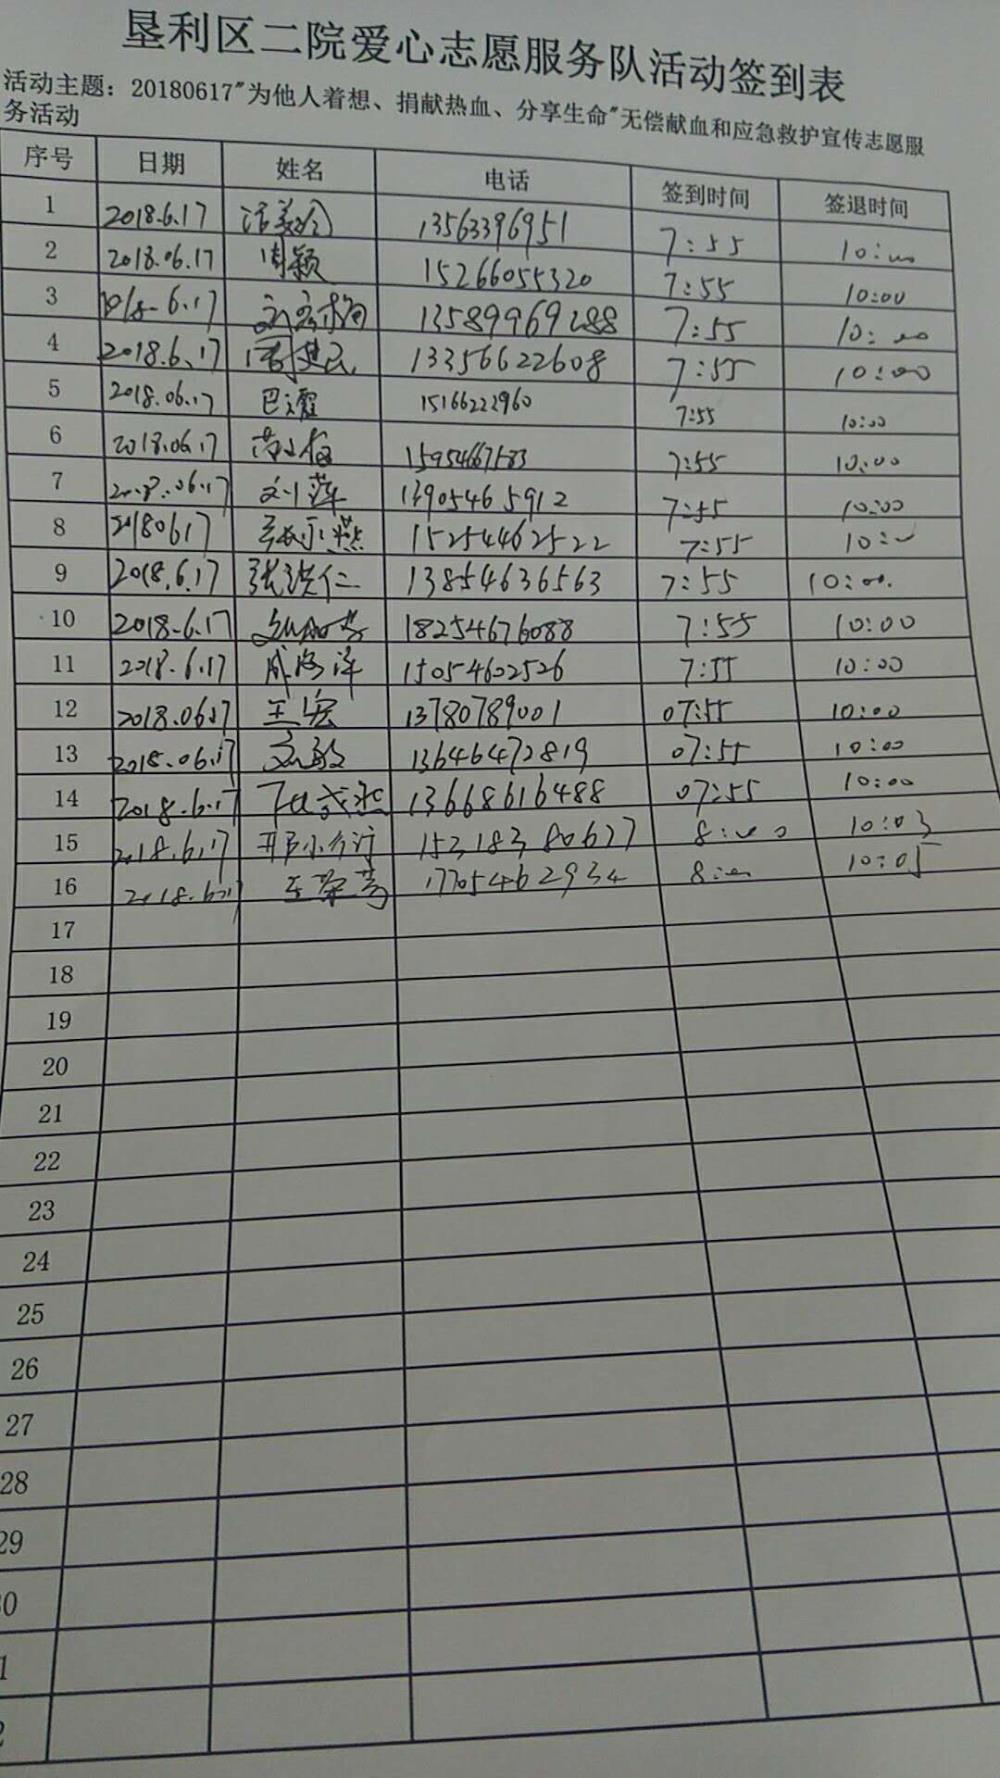 垦利区二院爱心志愿服务队活动签到表
活动主题：20180617"为他人着想、捐献热血、分享生命"无偿献血和应急救护宣传志愿服
务活动
序号 日期 姓名 电话 签到时间 签退时间
1 2018.6.17 13563396951 7:55 10:00
2 2018.06.17 周颖 15266055320 7:55 10:00
3 2018-6.17 13589969288 7:55 10:00
4 2018.6.17 周建民 13356622608 7:55 10:00
5 2018.06.17 巴霞 15166222960 7:55 10:00
6 2018.06.17 15954667583 7:55 10:00
7 2018.06.17 刘萍 13905465912 7:55 10:00
8 20180617 张小燕 15254462522 7:55 10:00
9 2018.6.17 张洪仁 13854636563 7:55 10:00.
10 2018.6.17 18254676088 7:55 10:00
11 2018.6.17 成海洋 15054602526 7:55 10:00
12 2018.0617 王宏 13780789001 07:55 10:00
13 2018.06.17 刘敏 13646472819 07:55 10:00
14 2018.6.17 13668616488 07:55 10:00
15 2018.6.17 15318380677 8:00 10:03
16 2018.6.17 王荣芳 17705462934 8:00 10:05
17
18
19
20
21
22
23
24
25
26
27
28
29